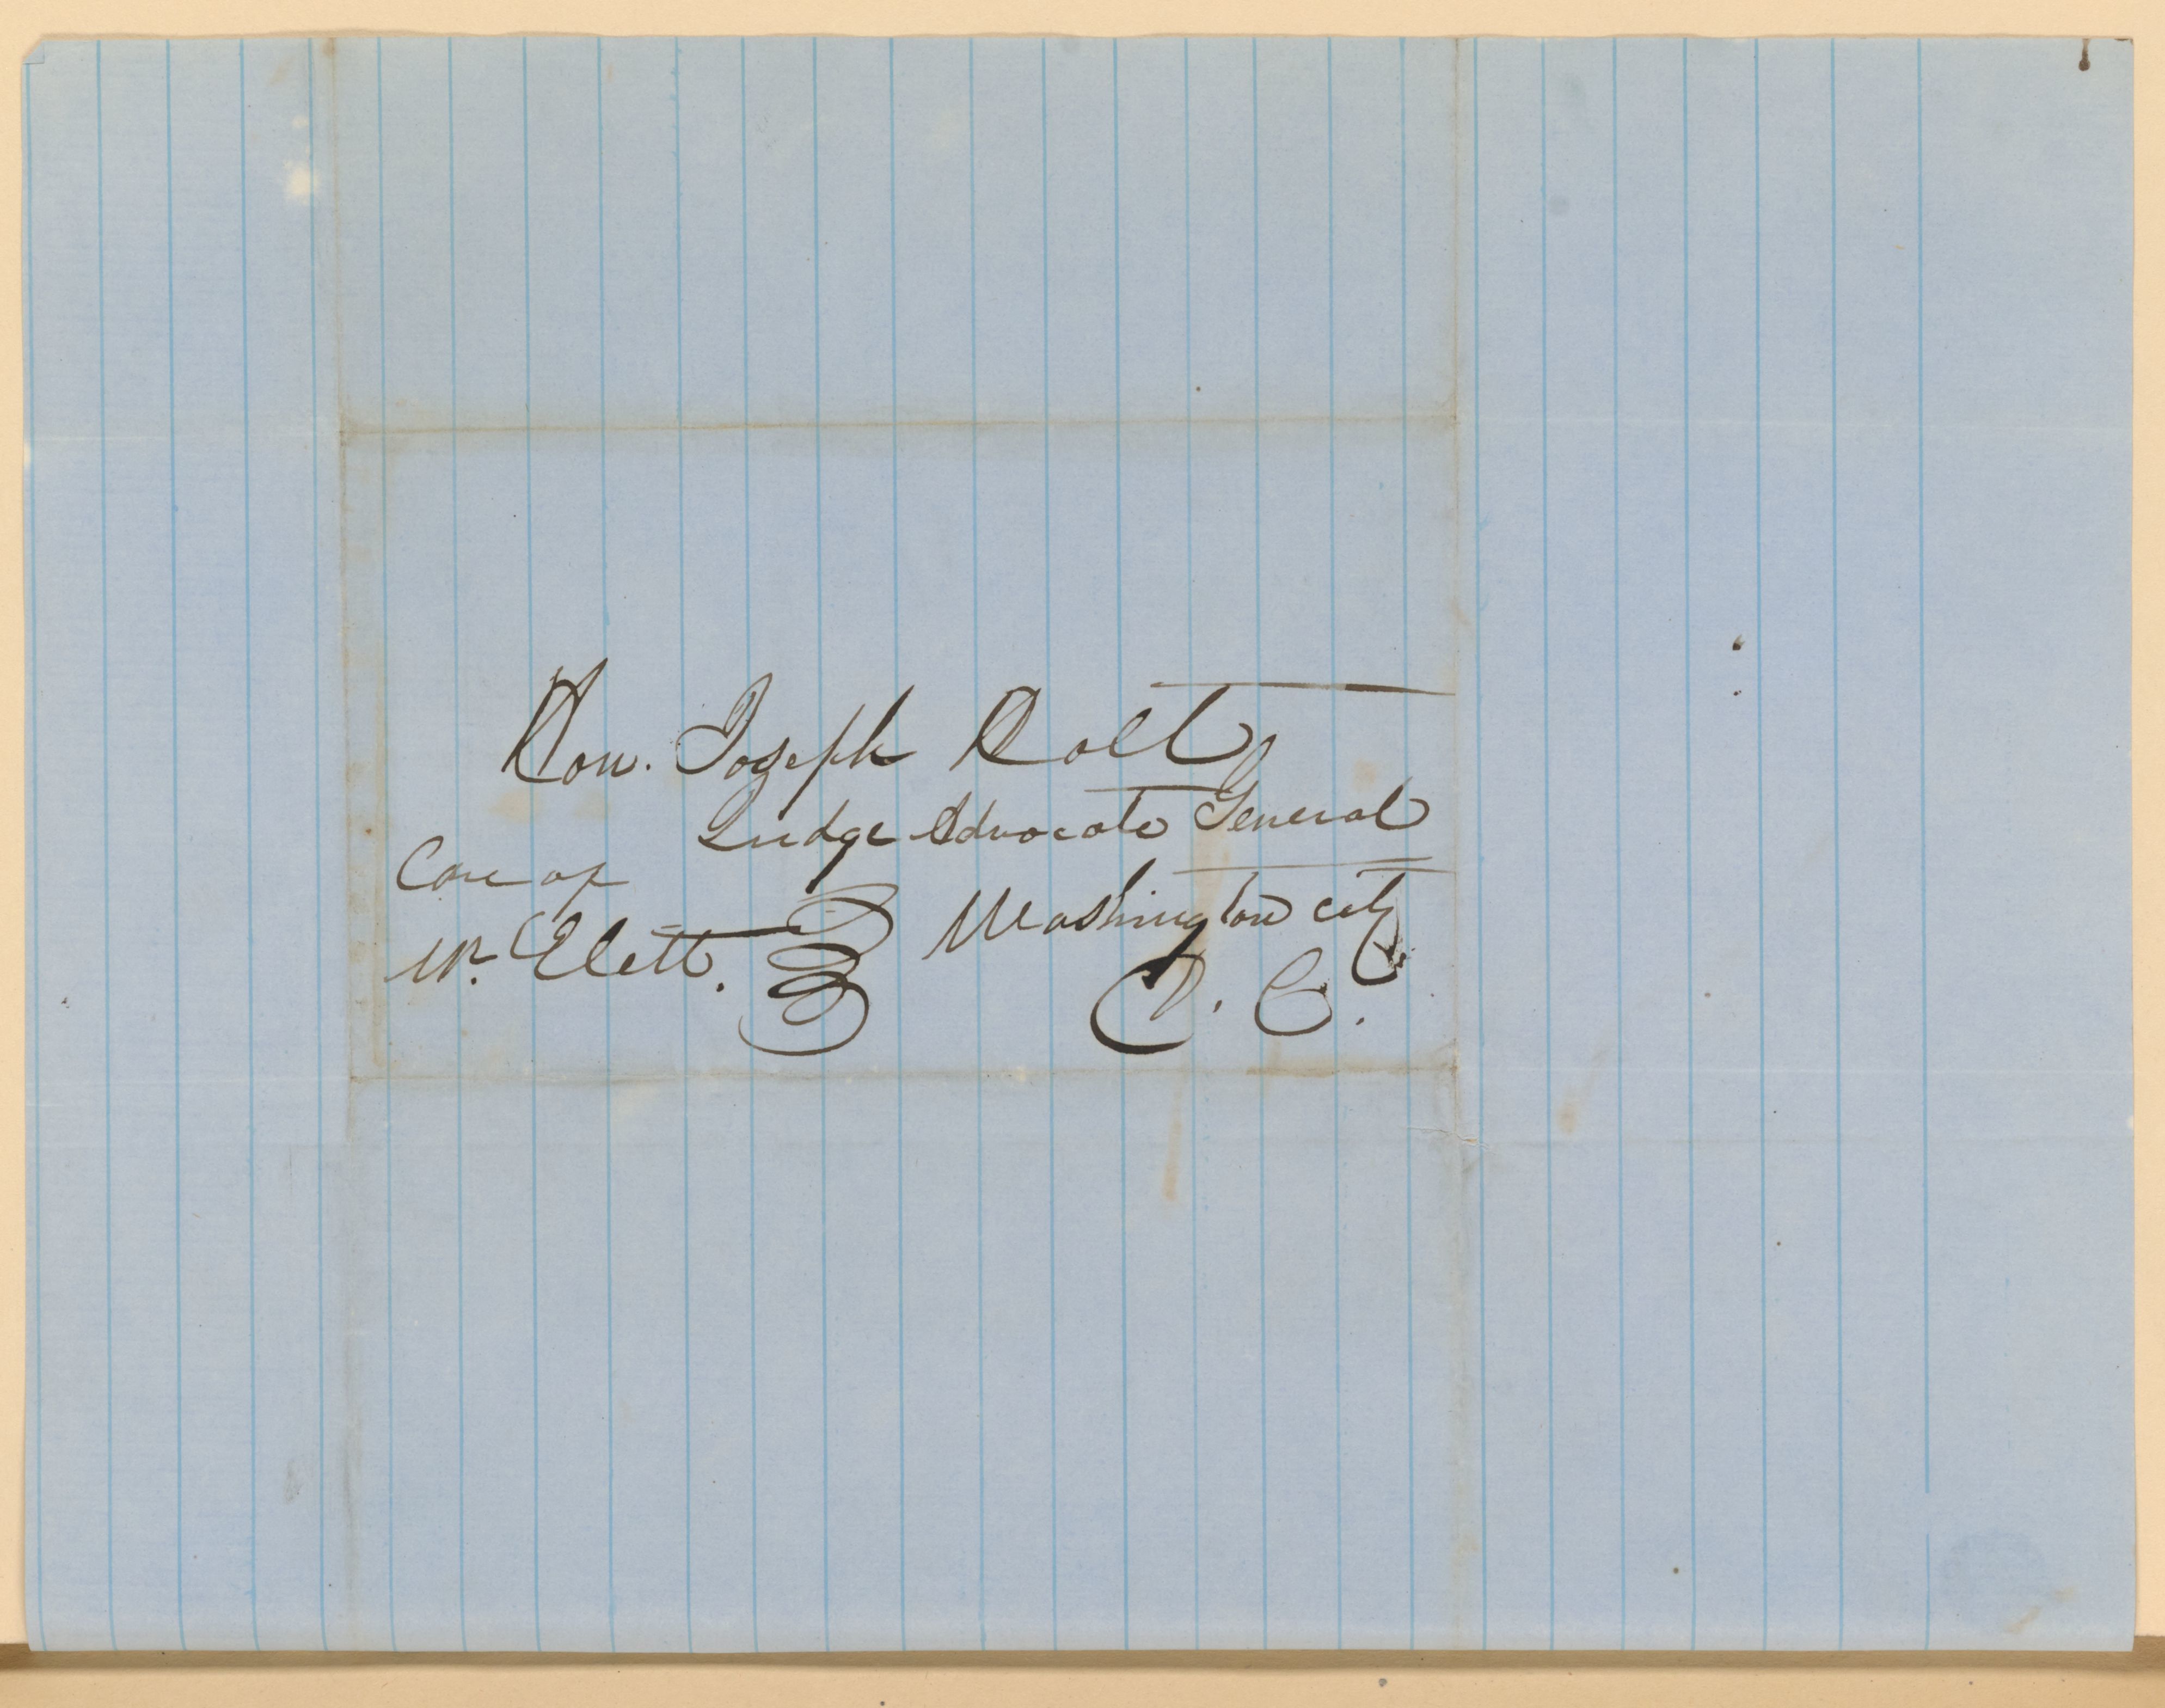 Hon. Joseph Holt
Judge Advocate General
Care of
Washington City
Mr. Elett.
D. C.